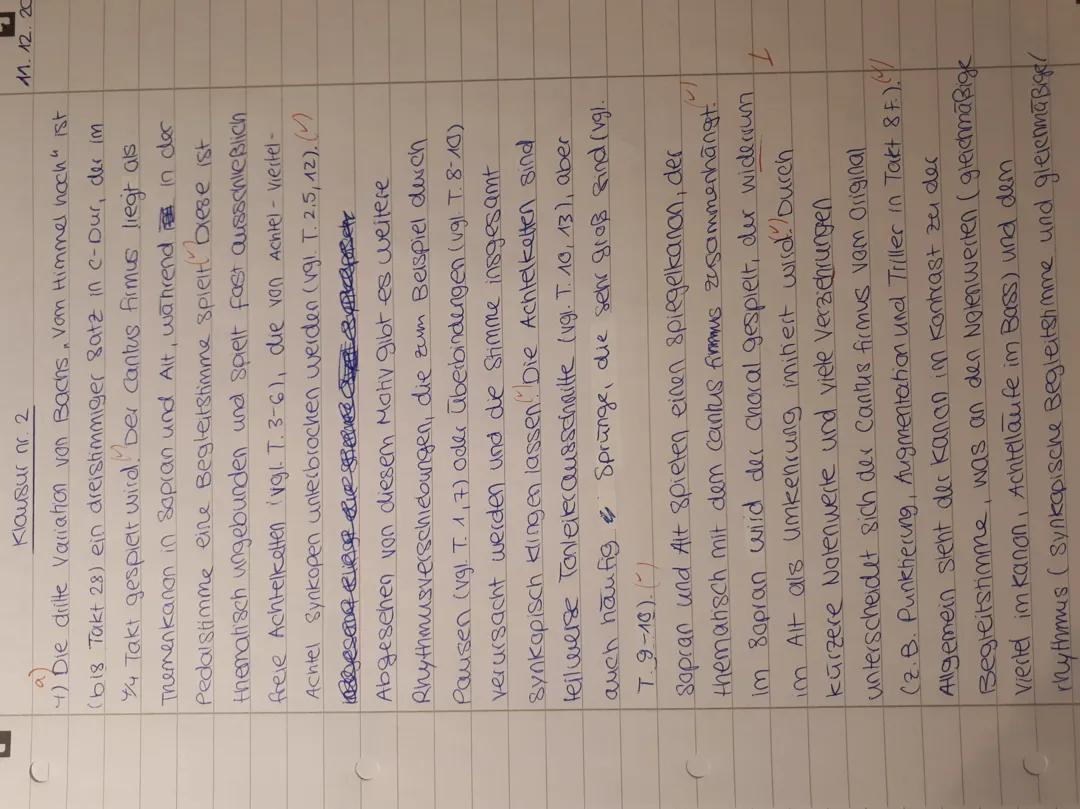 11.12.20
Klausur nr. 2
a)
4) Die dritte Variation von Bachs „Vom Himmel hoch" ist
(bis Takt 28) ein dreistimmiger Satz in C-Dur, der im
4/4 Takt gespielt wird.(✓) Der Cantus firmus liegt als
Themenkanon in Sopran und Alt, während in der
Pedalstimme eine Begleitstimme spielt.(✓) Diese ist
thematisch ungebunden und spielt fast ausschließlich
freie Achtelketten (vgl. T. 3-6), die von Achtel-Viertel-
Achtel Synkopen unterbrochen werden (vgl. T. 2.5, 12).(✓)
Abgesehen von diesem Motiv gibt es weitere
Rhythmusverschiebungen, die zum Beispiel durch
Pausen (vgl. T. 1, 7) oder Überbindungen (vgl. T. 8-10)
verursacht werden und die Stimme insgesamt
synkopisch klingen lassen.(✓) Die Achtelketten sind
teilweise Tonleiterausschnitte (vgl. T. 10, 13), aber
auch häufig Sprünge, die sehr groß sind (vgl.
T. 9-19).(✓)
Sopran und Alt spielen einen Spiegelkanon, der
thematisch mit dem cantus firmus zusammenhängt.(✓)
Im Sopran wird der Choral gespielt, der wiederum
im Alt als Umkehrung imitiert wird.(✓) Durch
kürzere Notenwerte und viele Verzierungen
unterscheidet sich der Cantus firmus vom Original
(z.B. Punktierung, Augmentation und Triller in Takt 8f.).(✓)
Allgemein steht der Kanon in Kontrast zu der
Begleitstimme, was an den Notenwerten (gleichmäßige
Viertel im Kanon, Achtelläufe im Bass) und dem
rhythmus (synkopische Begleitstimme und gleichmäßiger